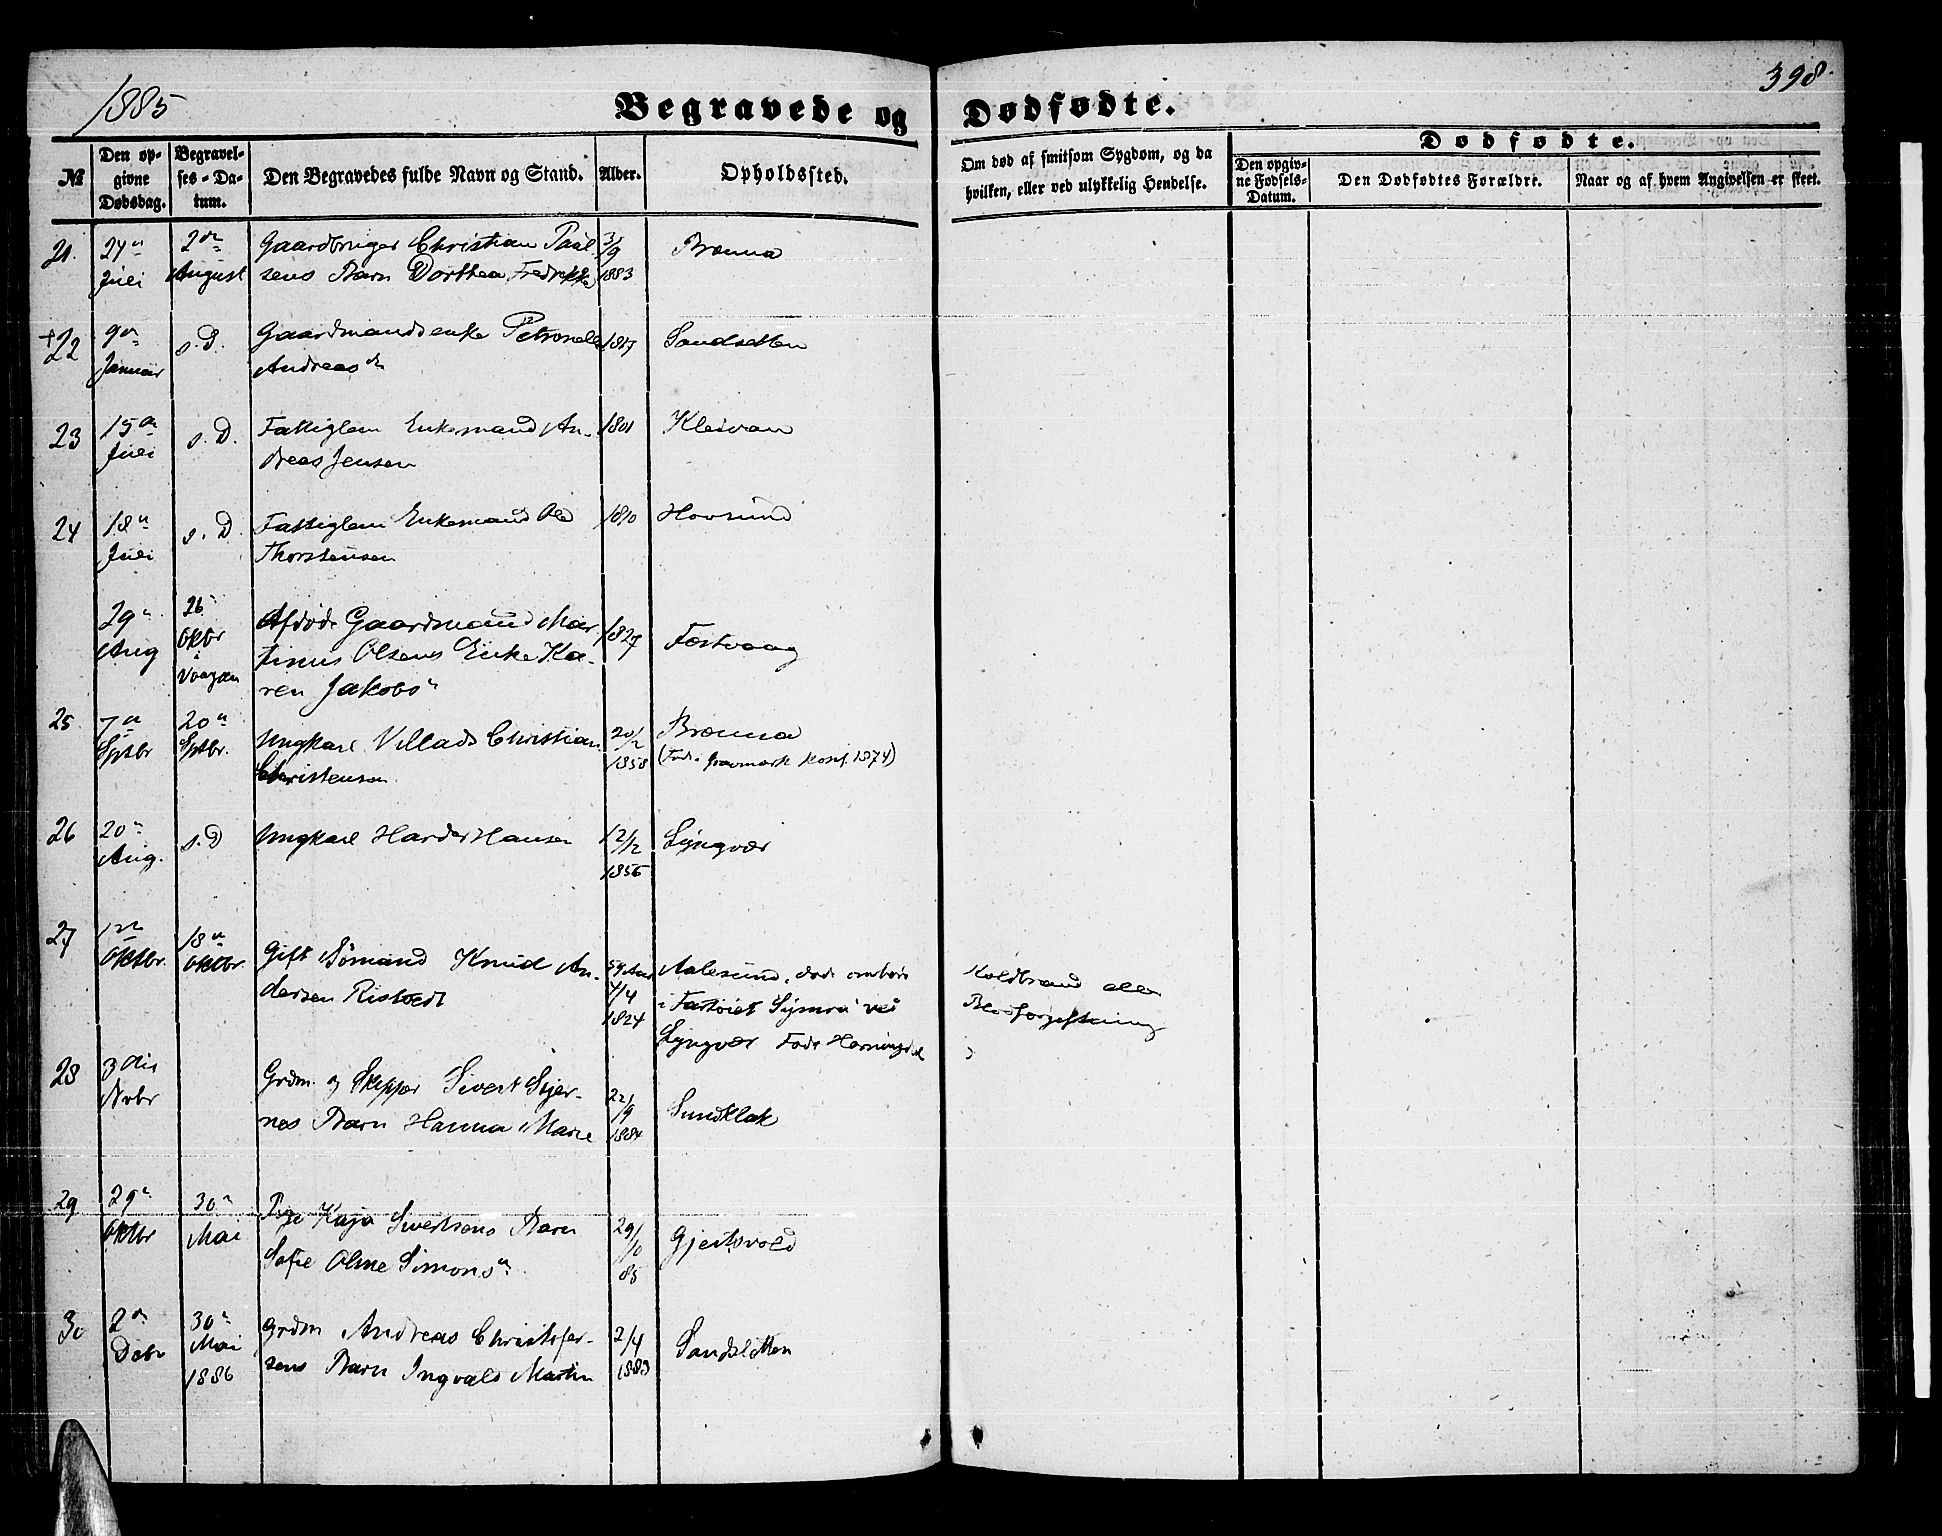 1885
398
Begravede og Dødfødte.
№
Den op-
givne
Dødsdag.
Begravel-
ses-Da-
tum.
Den Begravedes fulde Navn og Stand.
Alder.
Opholdssted.
Om død af smitsom Sygdom, og da
hvilken, eller ved ulykkelig Hendelse.
Dødfødte.
Den opgiv-
ne Fødsels-
Datum.
Den Dødfødtes Forældre.
Naar og af hvem Angivelsen er skeet.
21.
24n
Juli
2dn
August
Gaardbruger Christian Paul
sens Barn Dorthea Fredrikke
3/9
1883
Brenna
22
9n
Januar
s. D.
Gaardmandsenke Petronele
Andreasdn
1817
Sandsletten
23
15n
Juli
s. D.
Fattiglem Enkemand An-
dreas Jensen
1801
Kleivan
24
18n
Juli
s. D
Fattiglem Enkemand Ole
Thorstensen
1810
Hovsund
29n
Aug
26
Oktbr
i
Vaagan
Afdøde Gaardmand Mar
tinus Olsens Enke Ka-
ren Jakobsn
1827
Festvaag
25
7n
Sptbr
20n
Sptbr.
Ungkarl Villads Christian
Christensen
20/2
1858
Brenna
(Fød i Gravmark Konf. 1874)
26
20n
Aug.
s. D
Ungkarl Harder Hansen
12/12
1856
Lyngvær
27
12n
Oktbr.
18n
Oktbr.
Gift Sømand Knud An-
dersen Ristvedt
4/4
1824
Aalesund, døde ombord
i Fartøiet Symra ved
Lyngvær Født
Koldbrand eller
Blodforgiftning
28
3die
Nvbr
Grdm. og Skipper Sivert Stjer-
nes Barn Hanna Marie
22/9
1884
Sundklak
29
29n
Oktbr
30n
Mai
Pige Kaja Sivertsens Barn
Sofie Oline Simonsn
29/10
85
Gjertsvold
30
2dn
Debr
30n
Mai
1886
Grdm Andreas Christofer-
sens Barn Ingvald Martin
2/4
1883
Sandsletten